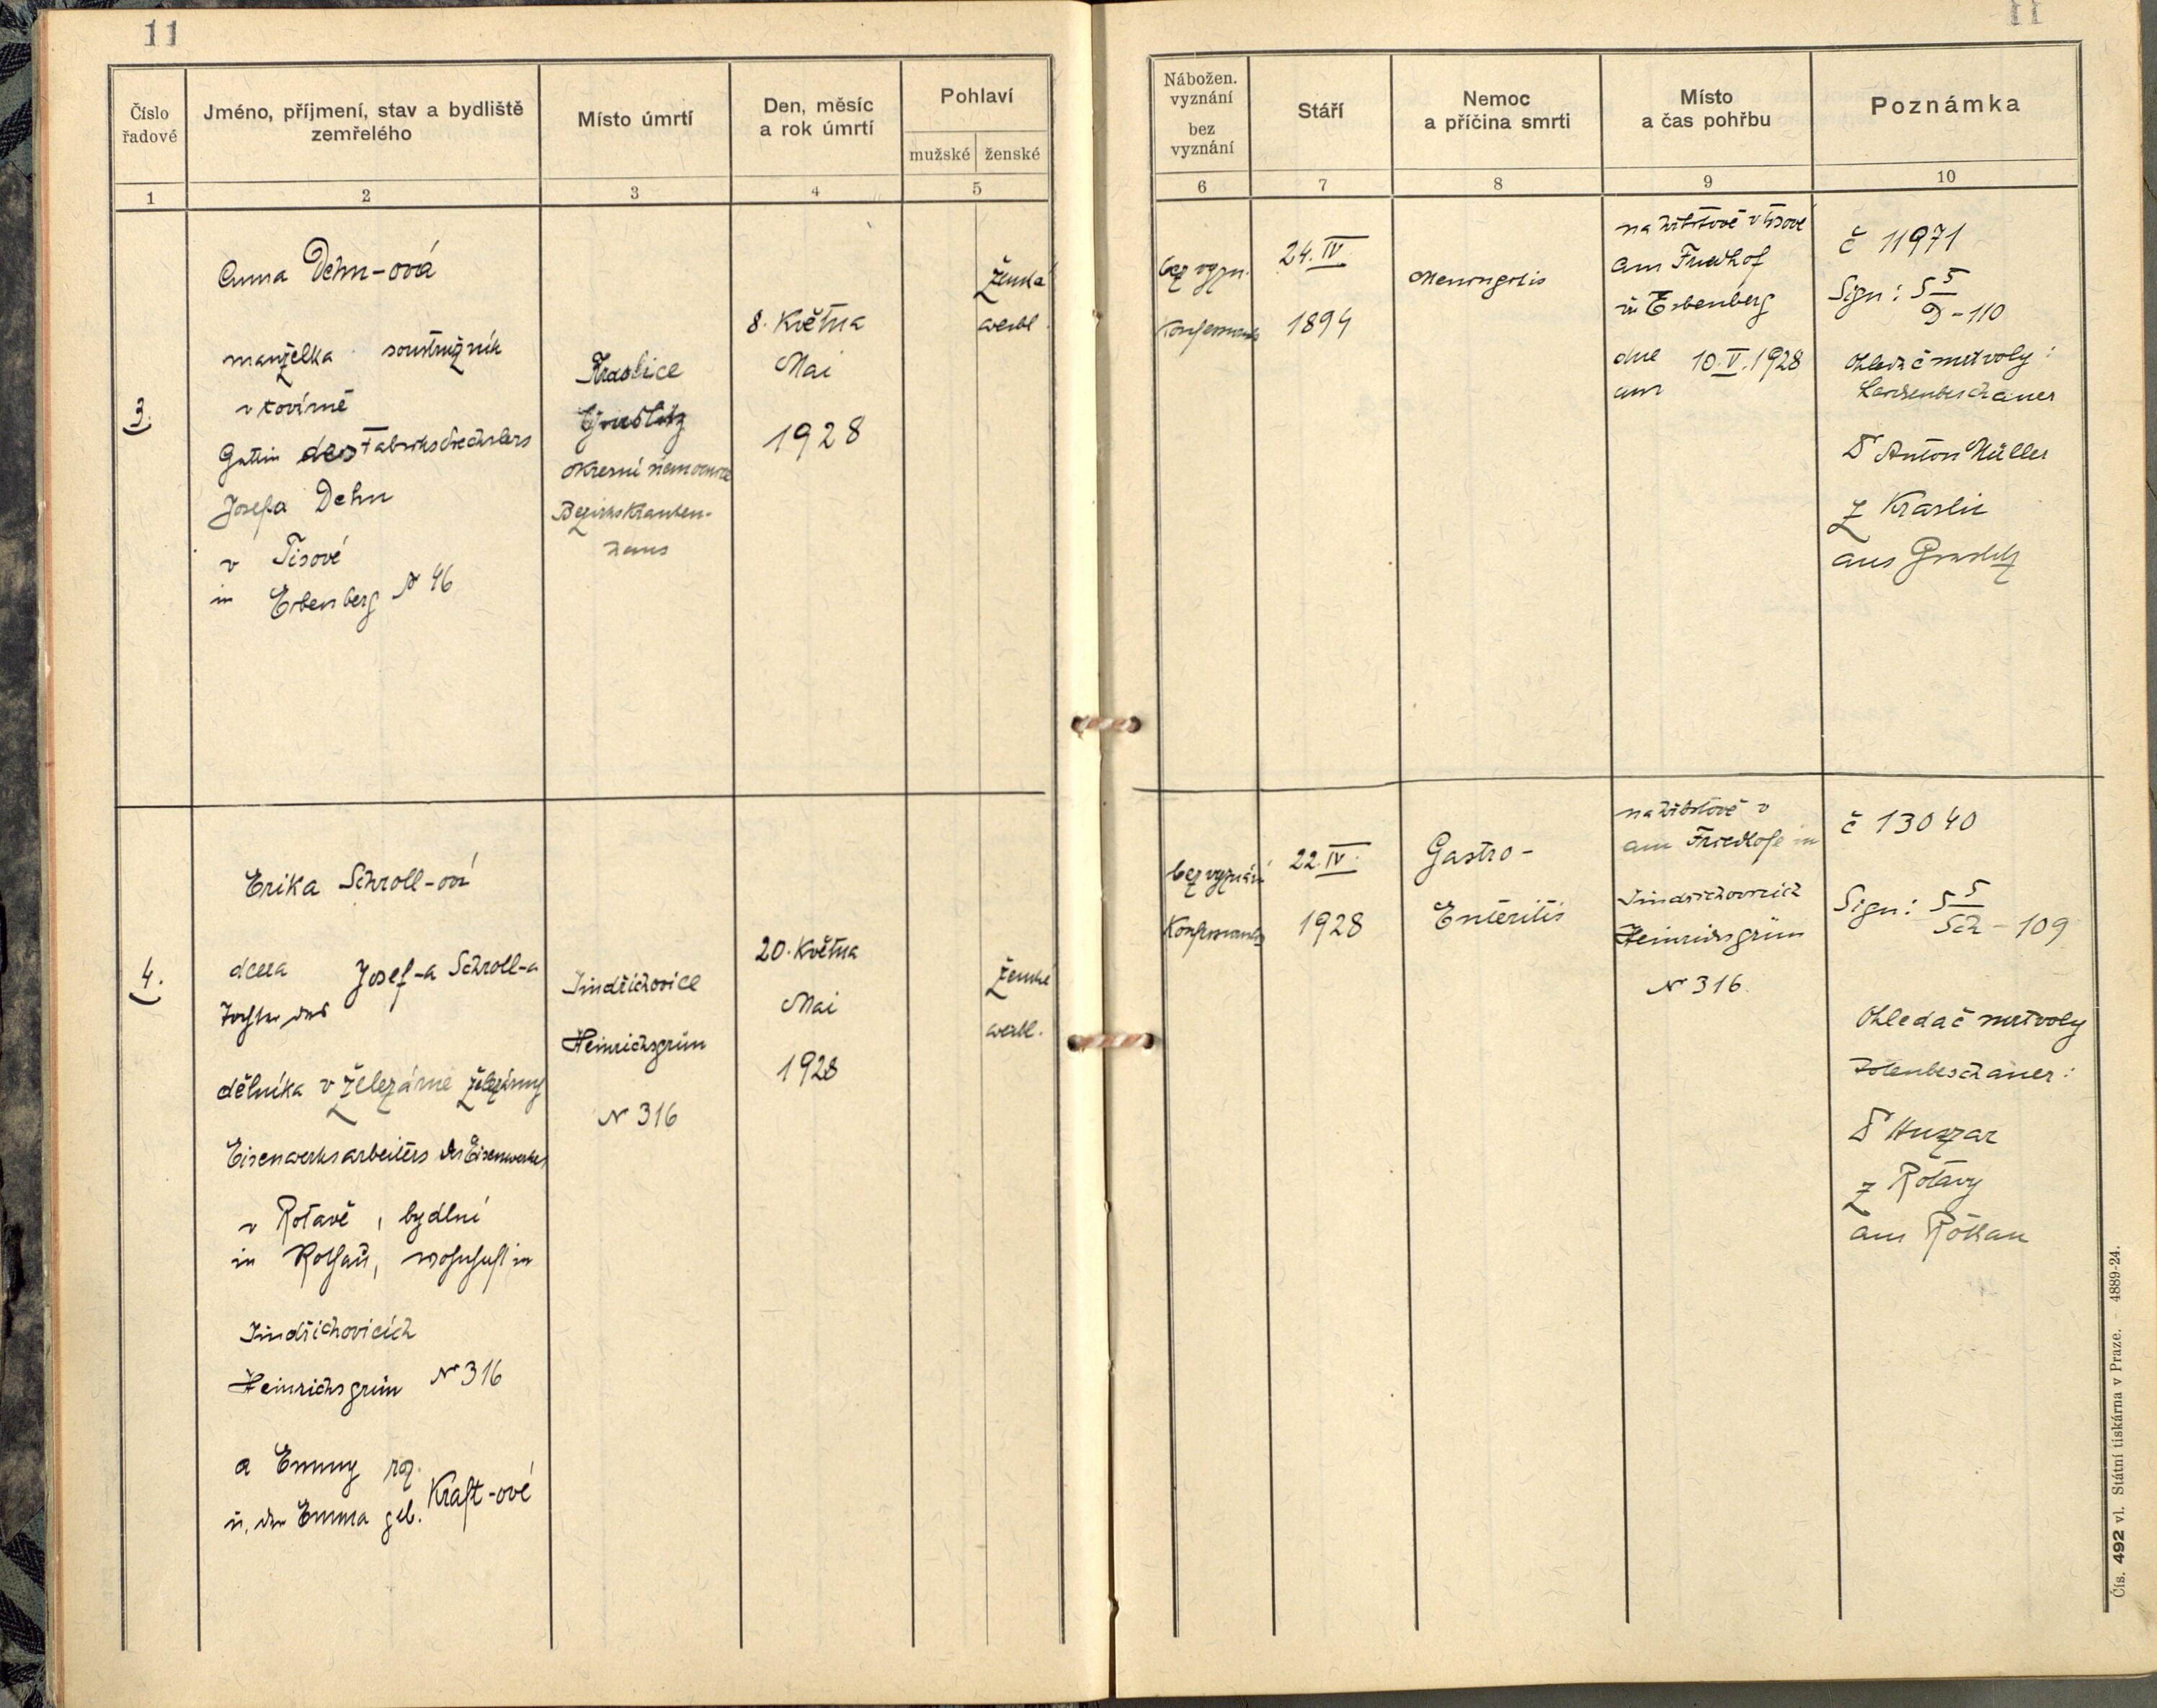 11
11
Číslo
řadové
Jméno, příjmení, stav a bydliště
zemřelého
Místo úmrtí
Den, měsíc
a rok úmrtí
Pohlaví
mužské
ženské
Nábožen.
vyznání
bez
vyznání
Stáří
Nemoc
a příčina smrti
Místo
a čas pohřbu
Poznámka
1
2
3
4
5
6
7
8
9
10
3.
Anna Dehn-ová
manželka soustružník
v továrně
Gattin des Fabriksdrechslers
Josefa Dehn
v Tisové
in Eibenberg N 46
Kraslice
Graslitz
okresní nemocnice
Bezirkskranken-
haus
8. Května
Mai
1928
ženské
weibl.
bez vyzn.
24. IV
1894
na hřbitově v Tisové
am Friedhof
in Eibenberg
dne 10. V. 1928
am
č 11971
Sign: 5 5
D - 110
Ohledač mrtvoly:
Leichenbeschauer
Dr Anton Müller
z Kraslic
aus Graslitz
4.
Erika Schroll-ová
dcera Josef-a Schroll-a
Tochter des
dělníka v železárně železárny
Eisenwerksarbeiters des Eisenwerkes
v Rotavě, bydlní
in Rothau, wohnhaft in
Jindřichovicích
Heinrichsgrün N 316
a Emmy roz.
u. der Emma geb. Kraft-ové
Jindřichovice
Heinrichsgrün
N 316
20. Května
Mai
1928
ženské
weibl.
bez vyznání
22. IV.
1928
Gastro-
Enteritis
na hřbitově v
am Friedhofe in
Jindřichovicích
Heinrichsgrün
N 316.
č 13040
Sign: 5 5
Sch - 109
Ohledač mrtvoly
Totenbeschauer:
Dr Huszar
z Rotavy
aus Rothau
Čís. 492 vl. Státní tiskárna v Praze. - 4889-24.